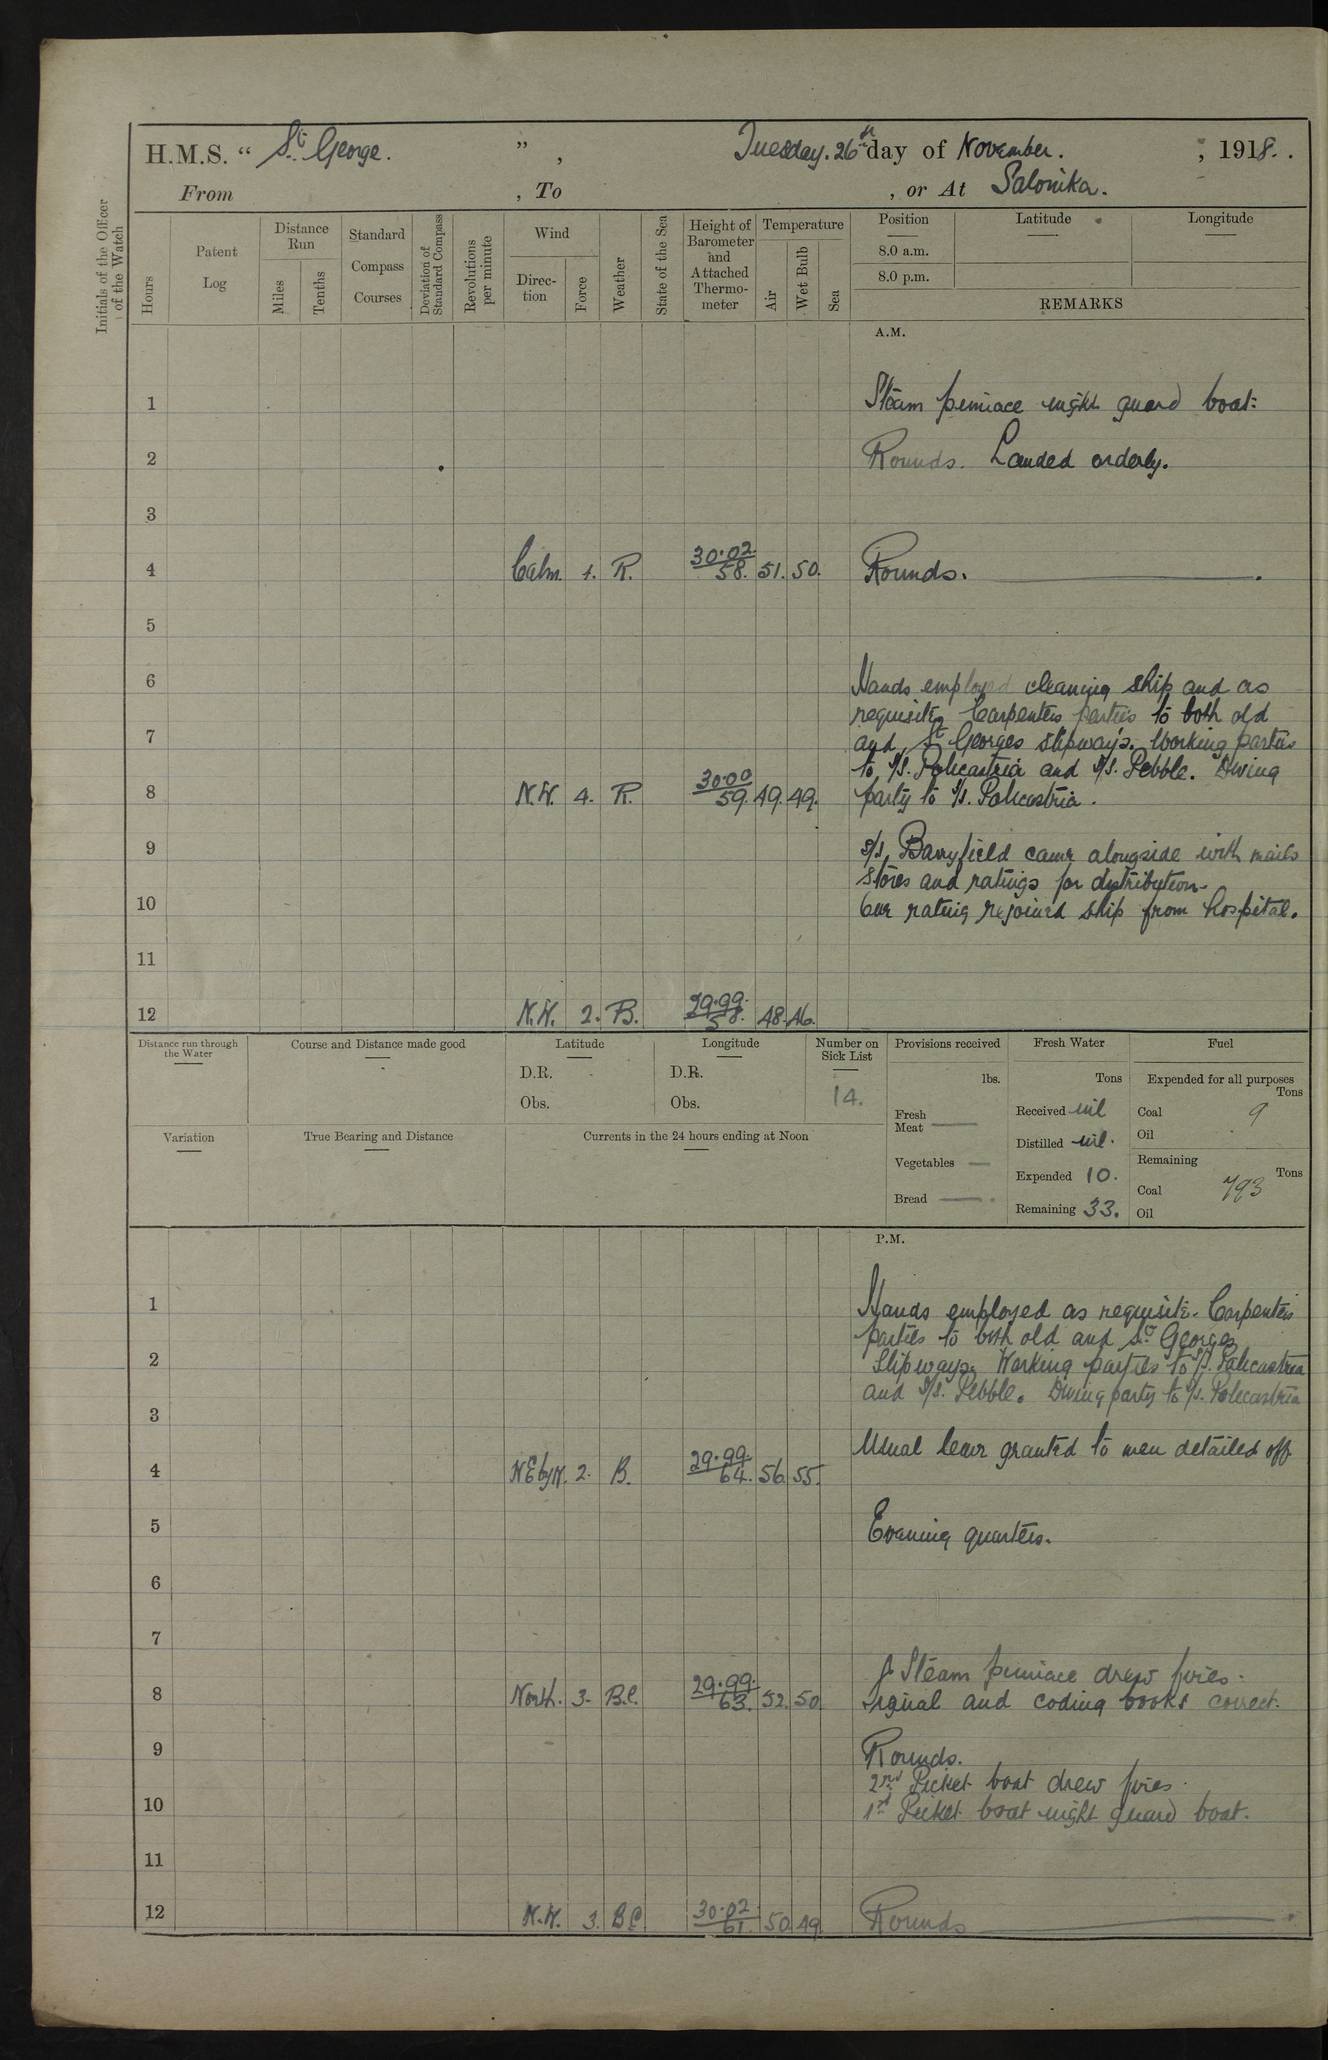 H.M.S. “ St George. ”, Tuesday. 26th day of November. , 1918. .
From , To , or At Salonika.
Initials of the Officer of the Watch
Hours
Patent Log
Distance Run
Miles
Tenths
Standard Compass Courses
Deviation of Standard Compass
Revolutions per minute
Wind
Direc-tion
Force
Weather
State of the Sea
Height of Barometer and Attached Thermo-meter
Temperature
Air
Wet Bulb
Sea
Position
Latitude
Longitude
8.0 a.m.
8.0 p.m.
REMARKS
A.M.
1 Steam pinnace night guard boat.
2 Rounds. Landed orderly.
3
4 Calm. 1. R. 30.02. 58. 51. 50. Rounds.
5
6 Hands employed cleaning ship and as
requisite. Carpenters parties to both old
7 and St Georges slipways. Working parties
to S/S. Policastria and S/S. Pebble. Diving
8 N.W. 4. R. 30.00 59. 49. 49. party to S/S. Policastria.
9 S/S. Barryfield came alongside with mails
stores and ratings for distribution.
10 One rating rejoined ship from hospital.
11
12 N.W. 2. B. 29.99. 58. 48. 46.
Distance run through the Water
Course and Distance made good
Latitude
D.R.
Obs.
Longitude
D.R.
Obs.
Number on Sick List
14.
Provisions received
lbs.
Fresh Meat
Vegetables
Bread
Fresh Water
Tons
Received nil
Distilled nil.
Expended 10.
Remaining 33.
Fuel
Expended for all purposes
Tons
Coal 9
Oil
Remaining
Tons
Coal 793
Oil
Variation
True Bearing and Distance
Currents in the 24 hours ending at Noon
P.M.
1 Hands employed as requisite. Carpenters
parties to both old and St Georges
2 Slipways. Working parties to S/S. Policastria
and S/S. Pebble. Diving party to S/S. Policastria
3
Usual leave granted to men detailed off
4 NEbyN. 2. B. 29.99. 64. 56. 55.
5 Evening quarters.
6
7
Steam pinnace drew fires.
8 North. 3. B.C. 29.99. 63. 52. 50. Signal and coding books correct.
9 Rounds.
2nd Picket boat drew fires.
10 1st Picket boat night guard boat.
11
12 N.W. 3. BC. 30.02. 61. 50. 49. Rounds